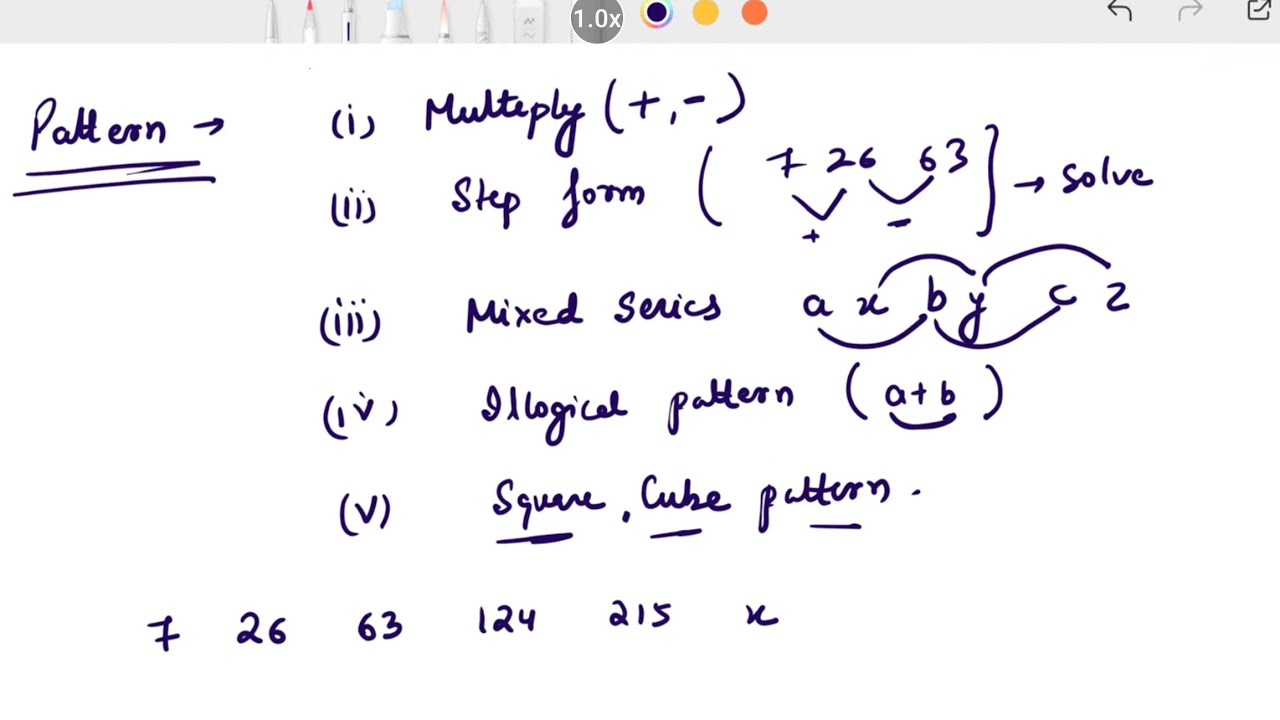 1.0x
Pattern → (i) Multiply (+,-)
(ii) Step form ( 7 26 63 ] → solve
+ -
(iii) Mixed Series a x b y c z
(iv) Illogical pattern (a+b)
(v) Square, Cube pattern.
7 26 63 124 215 x